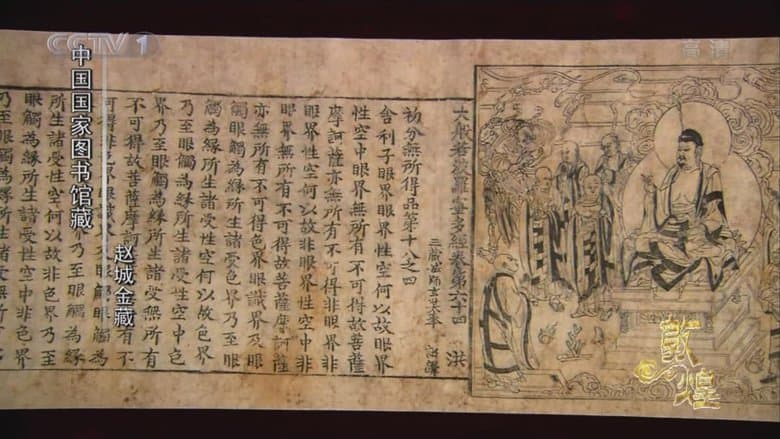 CCTV 1
高清
中国国家图书馆藏
赵城金藏
敦煌
大般若波羅蜜多經卷第六十四 洪
三藏法師玄奘奉 詔譯
初分無所得品第十八之四
舍利子眼界眼界性空何以故眼界
性空中眼界無所有不可得故菩薩
摩訶薩亦無所有不可得非眼界非
眼界性空何以故非眼界性空中非
眼界無所有不可得故菩薩摩訶薩
亦無所有不可得色界眼識界及眼
觸眼觸為緣所生諸受色界乃至
眼觸為緣所生諸受性空何以故色界
乃至眼觸為緣所生諸受性空中色
界乃至眼觸為緣所生諸受無所有
不可得故菩薩摩訶 有不
可得非色界眼 眼觸眼觸為緣
所生諸受性空何以故非 乃至
眼觸為緣所生諸受性空中非色界
乃至眼觸為緣所生諸受無所有